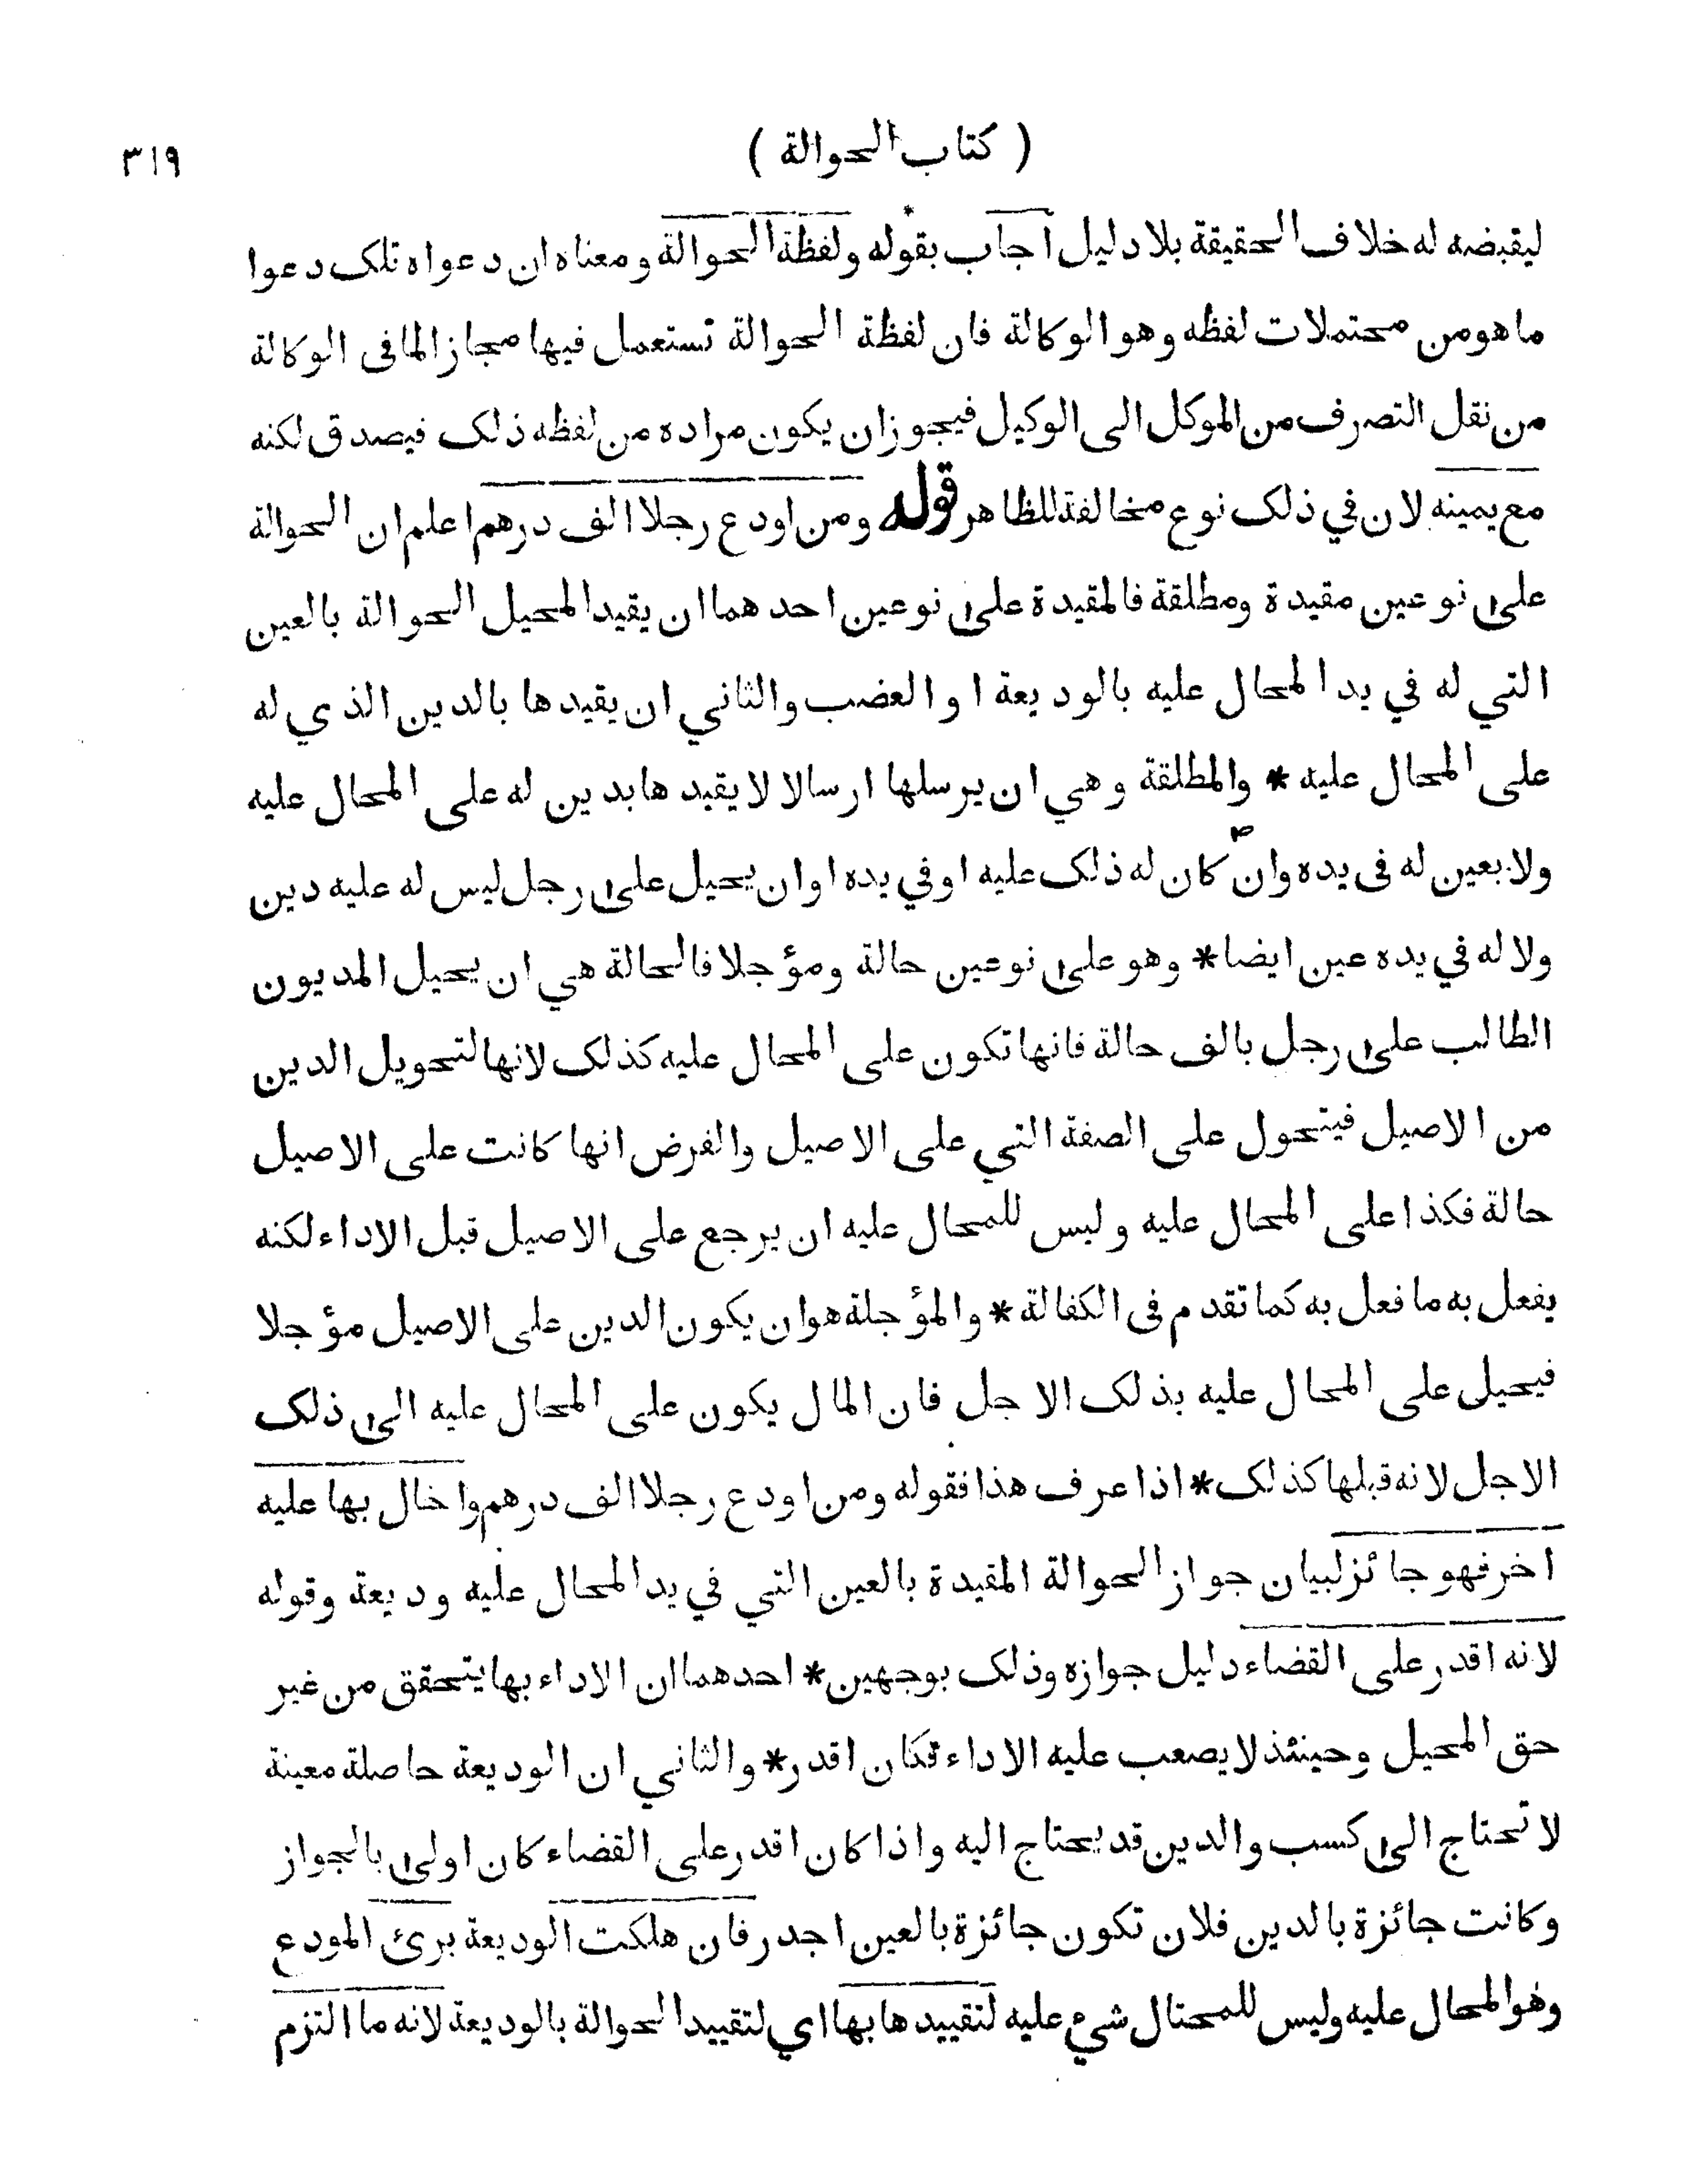 ( كتاب الحوالة )
٣١٩
ليقبضه له خلاف الحقيقة بلا دليل اجاب بقوله ولفظة الحوالة ومعناه ان دعواه تلك دعوا
ما هو من محتملات لفظه وهو الوكالة فان لفظة الحوالة تستعمل فيها مجازا لما فى الوكالة
من نقل التصرف من الموكل الى الوكيل فيجوز ان يكون مراده من لفظه ذلك فيصدق لكنه
مع يمينه لان في ذلك نوع مخالفة للظاهر قوله ومن اودع رجلا الف درهم اعلم ان الحوالة
على نوعين مقيدة ومطلقة فالمقيدة على نوعين احدهما ان يقيد المحيل الحوالة بالعين
التي له في يد المحال عليه بالوديعة او العضب والثاني ان يقيدها بالدين الذي له
على المحال عليه * والمطلقة وهي ان يرسلها ارسالا لا يقيدها بدين له على المحال عليه
ولا بعين له فى يده وان كان له ذلك عليه او في يده او ان يحيل على رجل ليس له عليه دين
ولا له في يده عين ايضا * وهو على نوعين حالة ومؤجلا فالحالة هي ان يحيل المديون
الطالب على رجل بالف حالة فانها تكون على المحال عليه كذلك لانها لتحويل الدين
من الاصيل فيتحول على الصفة التي على الاصيل والفرض انها كانت على الاصيل
حالة فكذا على المحال عليه وليس للمحال عليه ان يرجع على الاصيل قبل الاداء لكنه
يفعل به ما فعل به كما تقدم فى الكفالة * والمؤجلة هو ان يكون الدين على الاصيل مؤجلا
فيحيل على المحال عليه بذلك الاجل فان المال يكون على المحال عليه الى ذلك
الاجل لانه قبلها كذلك * اذا عرف هذا فقوله ومن اودع رجلا الف درهم واحال بها عليه
اخر فهو جائز لبيان جواز الحوالة المقيدة بالعين التي في يد المحال عليه وديعة وقوله
لانه اقدر على القضاء دليل جوازه وذلك بوجهين * احدهما ان الاداء بها يتحقق من غير
حق المحيل وحينئذ لا يصعب عليه الاداء فكان اقدر * والثاني ان الوديعة حاصلة معينة
لا تحتاج الى كسب والدين قد يحتاج اليه واذا كان اقدر على القضاء كان اولى بالجواز
وكانت جائزة بالدين فلان تكون جائزة بالعين اجدر فان هلكت الوديعة برئ المودع
وهو المحال عليه وليس للمحتال شيء عليه لتقييدها بها اي لتقييد الحوالة بالوديعة لانه ما التزم